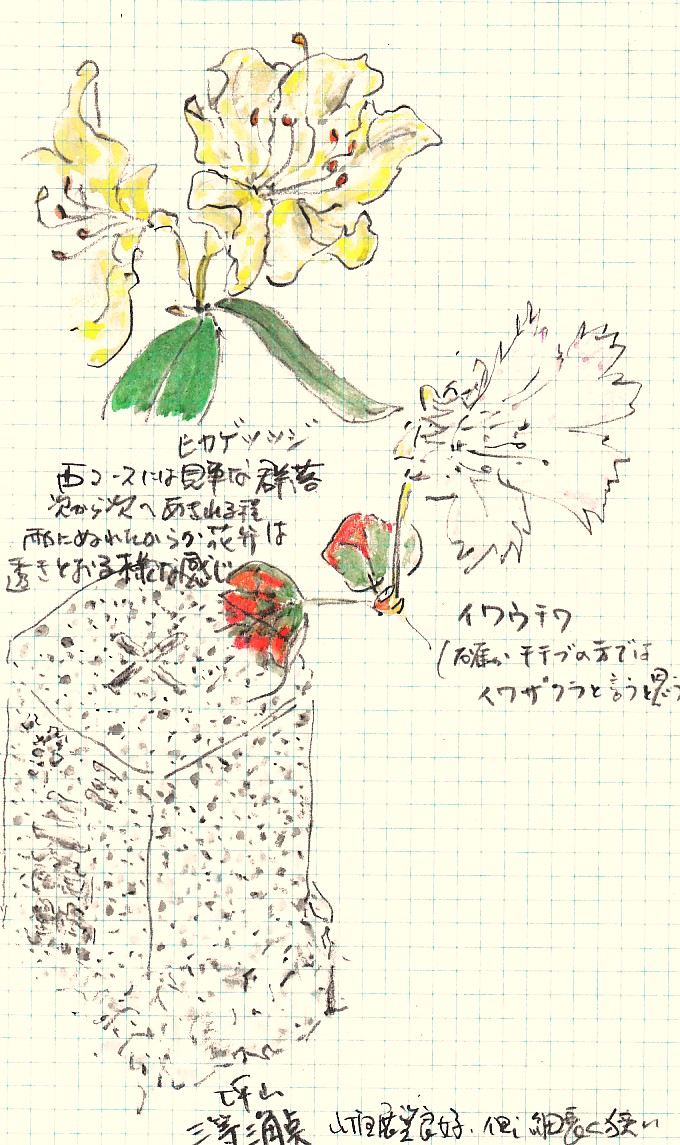 ヒカゲツツジ
西コースには見事な群落
次から次へあきれる程
雨にぬれたからか花弁は
透きとおる様な感じ
イワウチワ
(確か の方では
イワザクラと言うと思う
坪山
三等三角点
山頂展望良好. 但し 細長く狭い